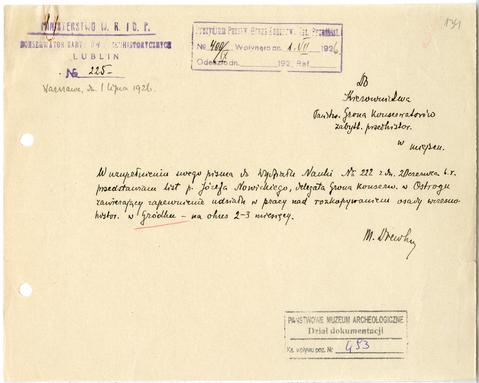 MINISTERSTWO W. R. I O. P.
KONSERWATOR ZABYTKÓW PREHISTORYCZNYCH
LUBLIN
№ 225.
Warszawa, dn. 1 lipca 1926.
Prezydjum Państw. Grona Konserw. Zab. Przedhist.
№ 400/ Wpłynęło dn. 1. VII 1926
Odesłano dn. 192 Ref.
Do
Kierownictwa
Państw. Grona Konserwatorów
zabytk. przedhistor.
w miejscu.
W uzupełnieniu swego pisma do Wydziału Nauki № 222 z dn. 2 czerwca b.r.
przedstawiam list p. Józefa Nowickiego, delegata Grona konserw. w Ostrogu
zawierający zapewnienie udziału w pracy nad rozkopywaniem osady wczesno-
histor. w Gródku – na okres 2-3 miesięcy.
M. Drewko
PAŃSTWOWE MUZEUM ARCHEOLOGICZNE
Dział dokumentacji
Ks. wpływu poz. Nr 453